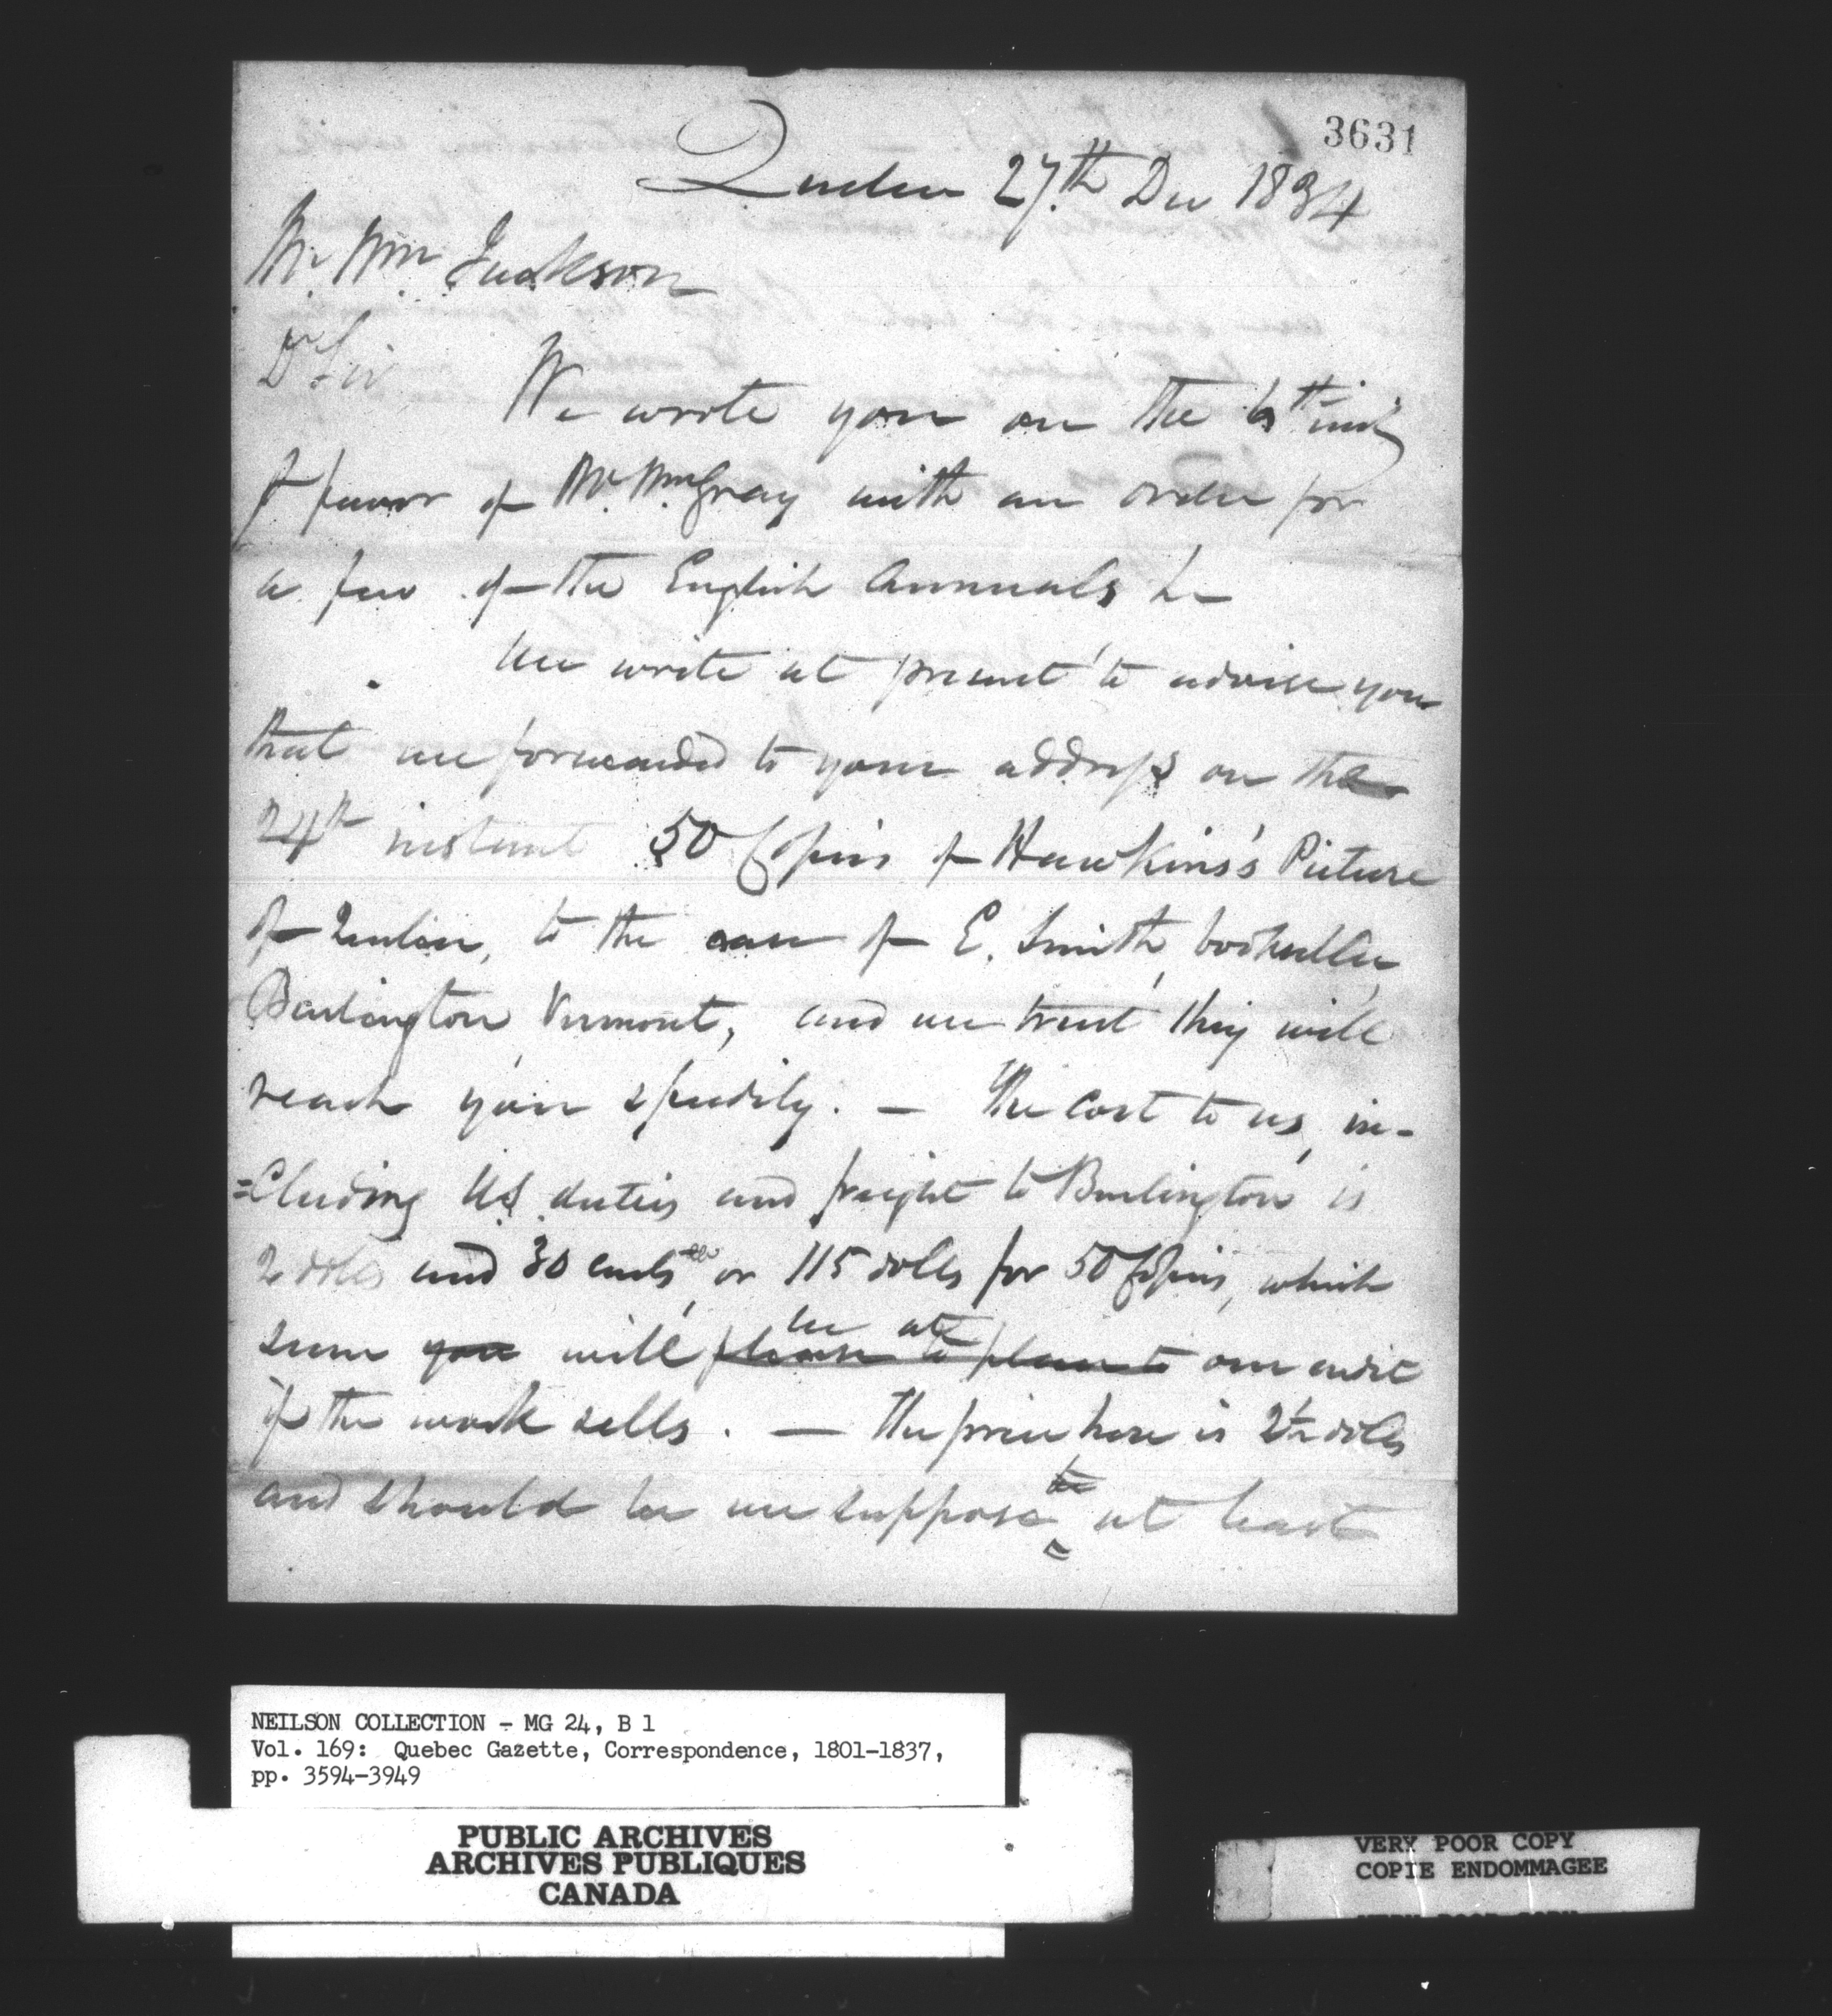 3631
Quebec 27th Dec 1834
Mr. Wm. Jackson
Dr Sir
We wrote you on the 6th inst
pr favor of Mr. Wm. Gray with an order for
a few of the English Annuals &c
We write at present to advise you
that we forwarded to your address on the
24th instant 50 Copies of Hawkins's Picture
of Quebec, to the care of E. Smith, bookseller,
Burlington, Vermont, and we trust they will
reach you speedily. — The cost to us, in-
=cluding US duties and freight to Burlington is
2 dolls and 30 cents, or 115 dolls for 50 Copies, which
be at
sum you will please to place to our credit
if the work sells. — The price here is 2½ dolls
and should be we suppose at least
NEILSON COLLECTION - MG 24, B 1
Vol. 169: Quebec Gazette, Correspondence, 1801-1837,
pp. 3594-3949
PUBLIC ARCHIVES
ARCHIVES PUBLIQUES
CANADA
VERY POOR COPY
COPIE ENDOMMAGEE